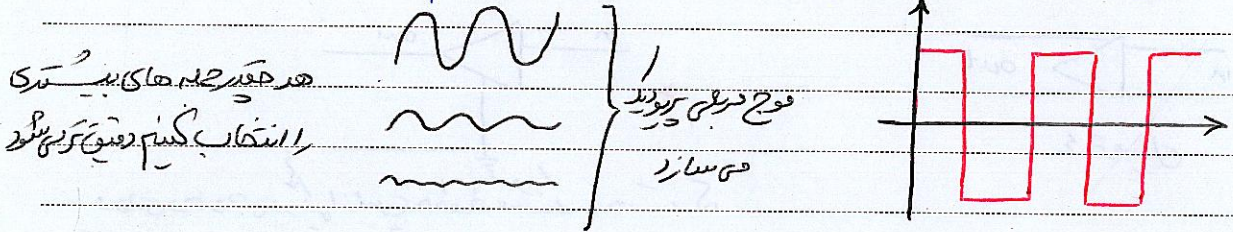 هر چقدر جمله های بیشتری
را انتخاب کنیم دقیق تر می شود
موج مربعی پریودیک
را می سازد